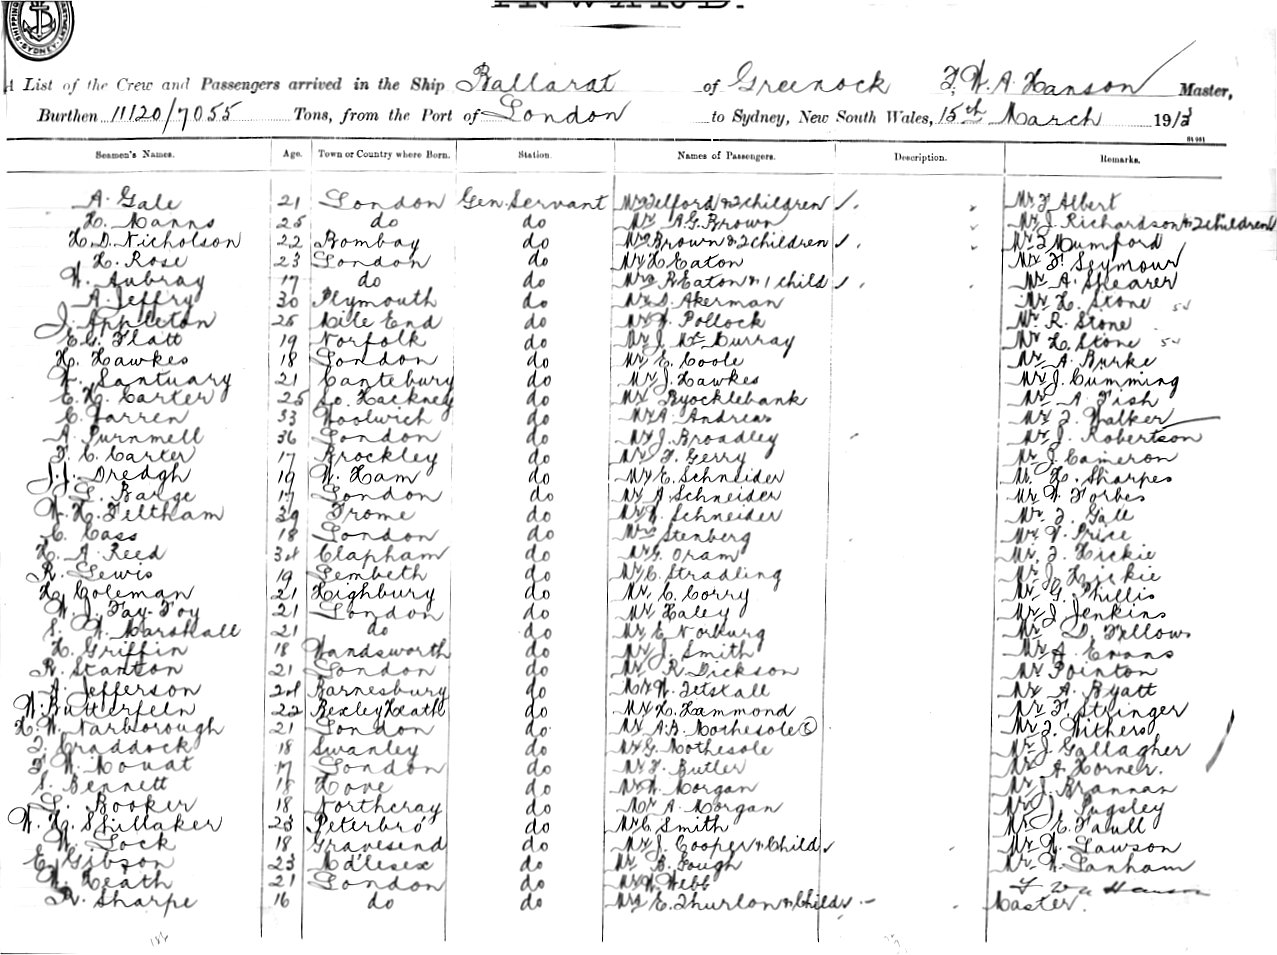 INWARD.
SHIPPING SYDNEY
A List of the Crew and Passengers arrived in the Ship Ballarat of Greenock F. W. A. Hanson Master,
Burthen 11120/7055 Tons, from the Port of London to Sydney, New South Wales, 15th March 1913
Seamen's Names. Age. Town or Country where Born. Station. Names of Passengers. Description. Remarks.
A. Gale 21 London Gen. Servant Mrs Telford & 2 children Mr F Albert
H. Manns 25 do do Mr A.G. Brown Mr J. Richardson & 2 children
H. D. Nicholson 22 Bombay do Mrs Brown & 2 children Mr F Mumford
H. Rose 23 London do Mr H Eaton Mr F. Seymour
W. Aubray 17 do do Mrs R Eaton & 1 child Mr A. Shearer
A. Jeffry 30 Plymouth do Mr D. Akerman Mr H. Stone
J. Appleton 25 Mile End do Mr W. Pollock Mr R. Stone
E. G. Flatt 19 Norfolk do Mr J. Mc Murray Mr H. Stone
H. Hawkes 18 London do Mr E. Coole Mr A. Burke
W. Santuary 21 Cantebury do Mr J. Hawkes Mr J. Cumming
E. H. Carter 25 So. Hackney do Mr Byocklebank Mr A. Fish
C. Warren 33 Woolwich do Mr A. Andreas Mr F. Walker
A. Purnmell 36 London do Mr J. Broadley Mr J. Robertson
F. C. Carter 17 Brockley do Mr F. Gerry Mr J. Cameron
J. J. Dredgh 19 W. Ham do Mr E. Schneider Mr H. Sharpes
L. Barge 17 London do Mr A Schneider Mr W. Forbes
W. H. Feltham 39 Frome do Mr W. Schneider Mr F. Gall
C. Cass 18 London do Mrs Stenberg Mr V. Price
H. A. Reed Clapham do Mr G. Oram Mr F. Hickie
R. Lewis 19 Lembeth do Mr C. Stradling Mr J Hickie
H. Coleman 21 Highbury do Mr C. Corry Mr G. Phillis
W. J. Fay-Foy 21 London do Mr Haley Mr J. Jenkins
S. W. Marshall 21 do do Mr E Norburg Mr D. Fellows
H. Griffin 18 Wandsworth do Mr J. Smith Mr A. Evans
R. Stanton 21 London do Mr R. Dickson Mr Pointon
A. Jefferson Barnesbury do Mr W. Tetskall Mr A. Byatt
W. Butterfeln 22 Bexley Heath do Mr H. Hammond Mr F. Stringer
H. W. Narborough 21 London do Mr A.B. Mothesole Mr F. Withers
F. Craddock 18 Swanley do Mr G. Mothesole Mr J. Gallagher
F. W. Mouat 17 London do Mr F. Butler Mr A. Horner.
S. Bennett 18 Hove do Mr W. Morgan Mr J. Brannan
L. Booker 18 Northcray do Mr A. Morgan Mr J. Pugsley
W. H. Shillaker 23 Peterbro' do Mr C. Smith Mr E. Faull
W. Lock 18 Gravesend do Mr J. Cooper & Child Mr W. Lawson
E. Gibson 23 Mdlesex do Mr B. Gough Mr W. Lanham
W. Heath 21 London do Mr W. Webb F W A Hanson
R. Sharpe 16 do do Mrs E. Thurlon & Child Master.